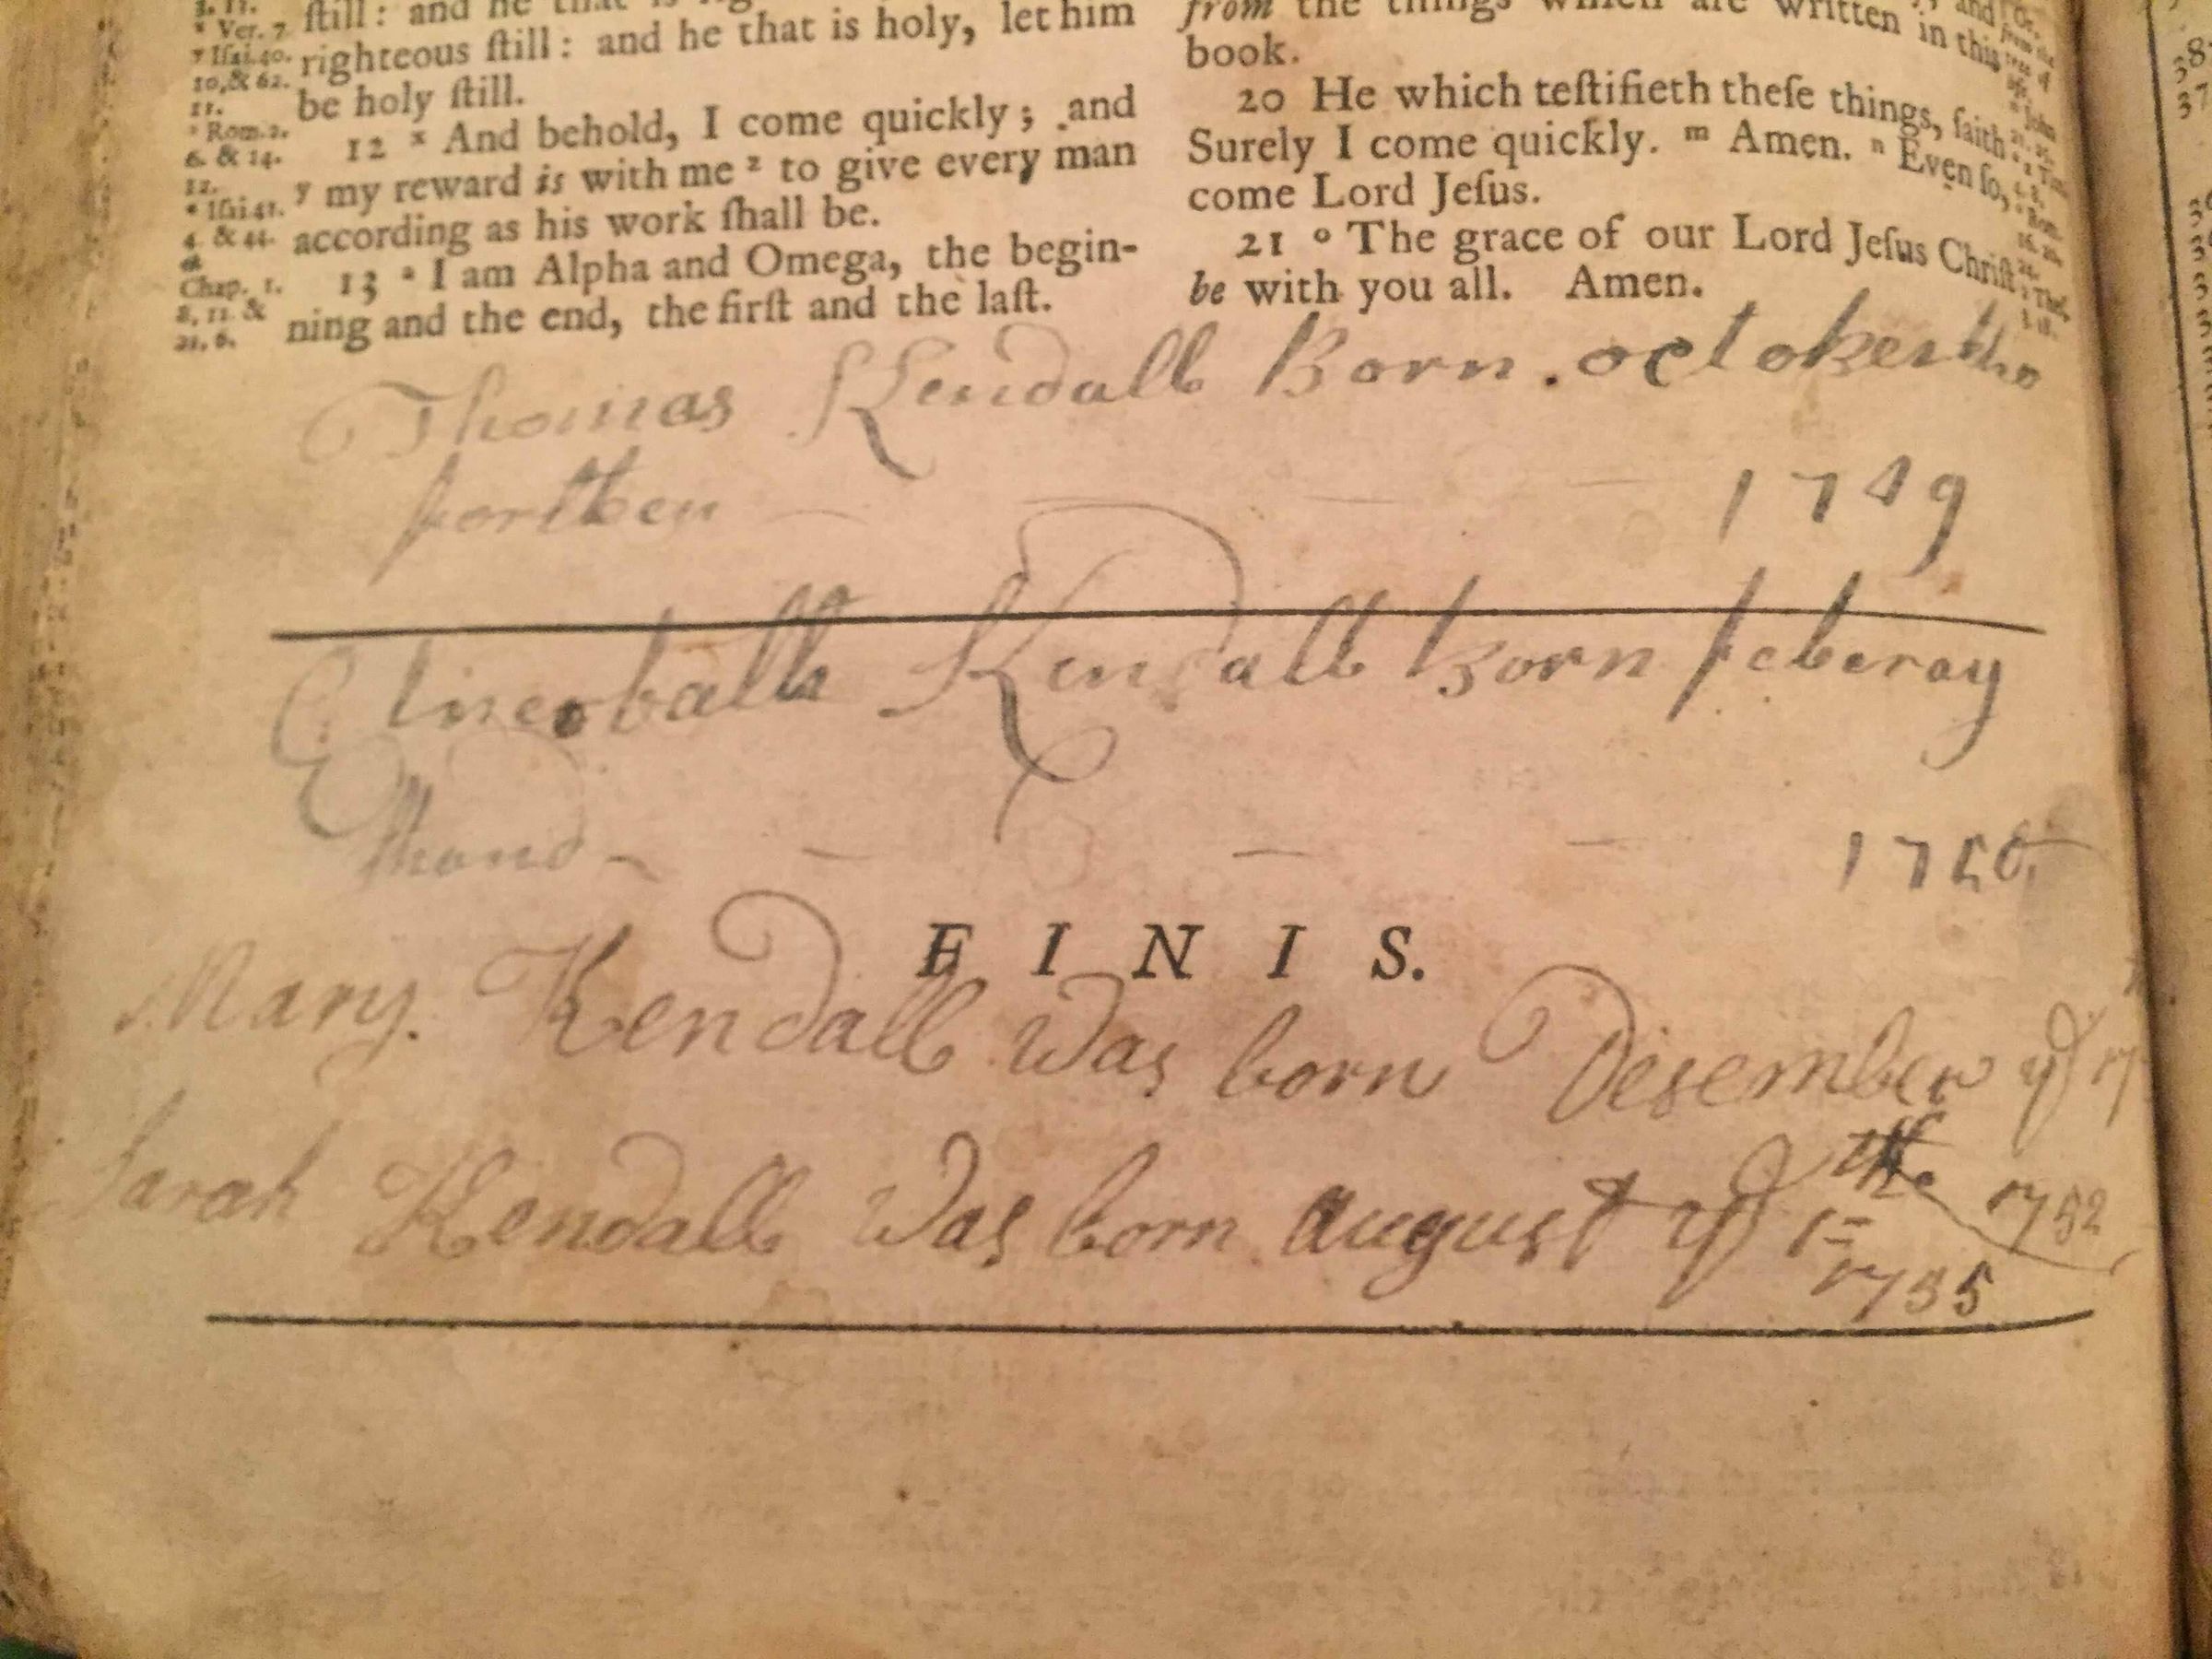 still: and he that is
righteous still: and he that is holy, let him
be holy still.
12 ˣ And behold, I come quickly; and
ʸ my reward is with me ᶻ to give every man
according as his work shall be.
13 ᵃ I am Alpha and Omega, the begin-
ning and the end, the first and the last.
ˣ Ver. 7.
ʸ Isai. 40.
10, & 62.
11.
ᶻ Rom. 2.
6. & 14.
12.
ᵃ Isai 41.
4. & 44.
Chap. 1.
8, 11. &
21, 6.
from the things which are written in this
book.
20 He which testifieth these things, saith
Surely I come quickly. ᵐ Amen. ⁿ Even so,
come Lord Jesus.
21 ᵒ The grace of our Lord Jesus Christ
be with you all. Amen.
Thomas Kendall Born october the
forthen 1749
Kendall Born feberay
1750
FINIS.
Mary Kendall Was born Desember ye 17
the 1752
Sarah Kendall Was born august ye 1
1755